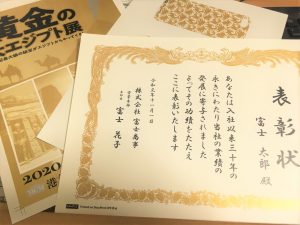 表彰状
富士 太郎 殿
あなたは入社以来三十年の
永きにわたり当社の業績の
発展に寄与されました
よってその功績をたたえ
ここに表彰いたします
令和元年十一月一日
株式会社 富士商事
富士 花子
黄金の
エジプト展
2020
港